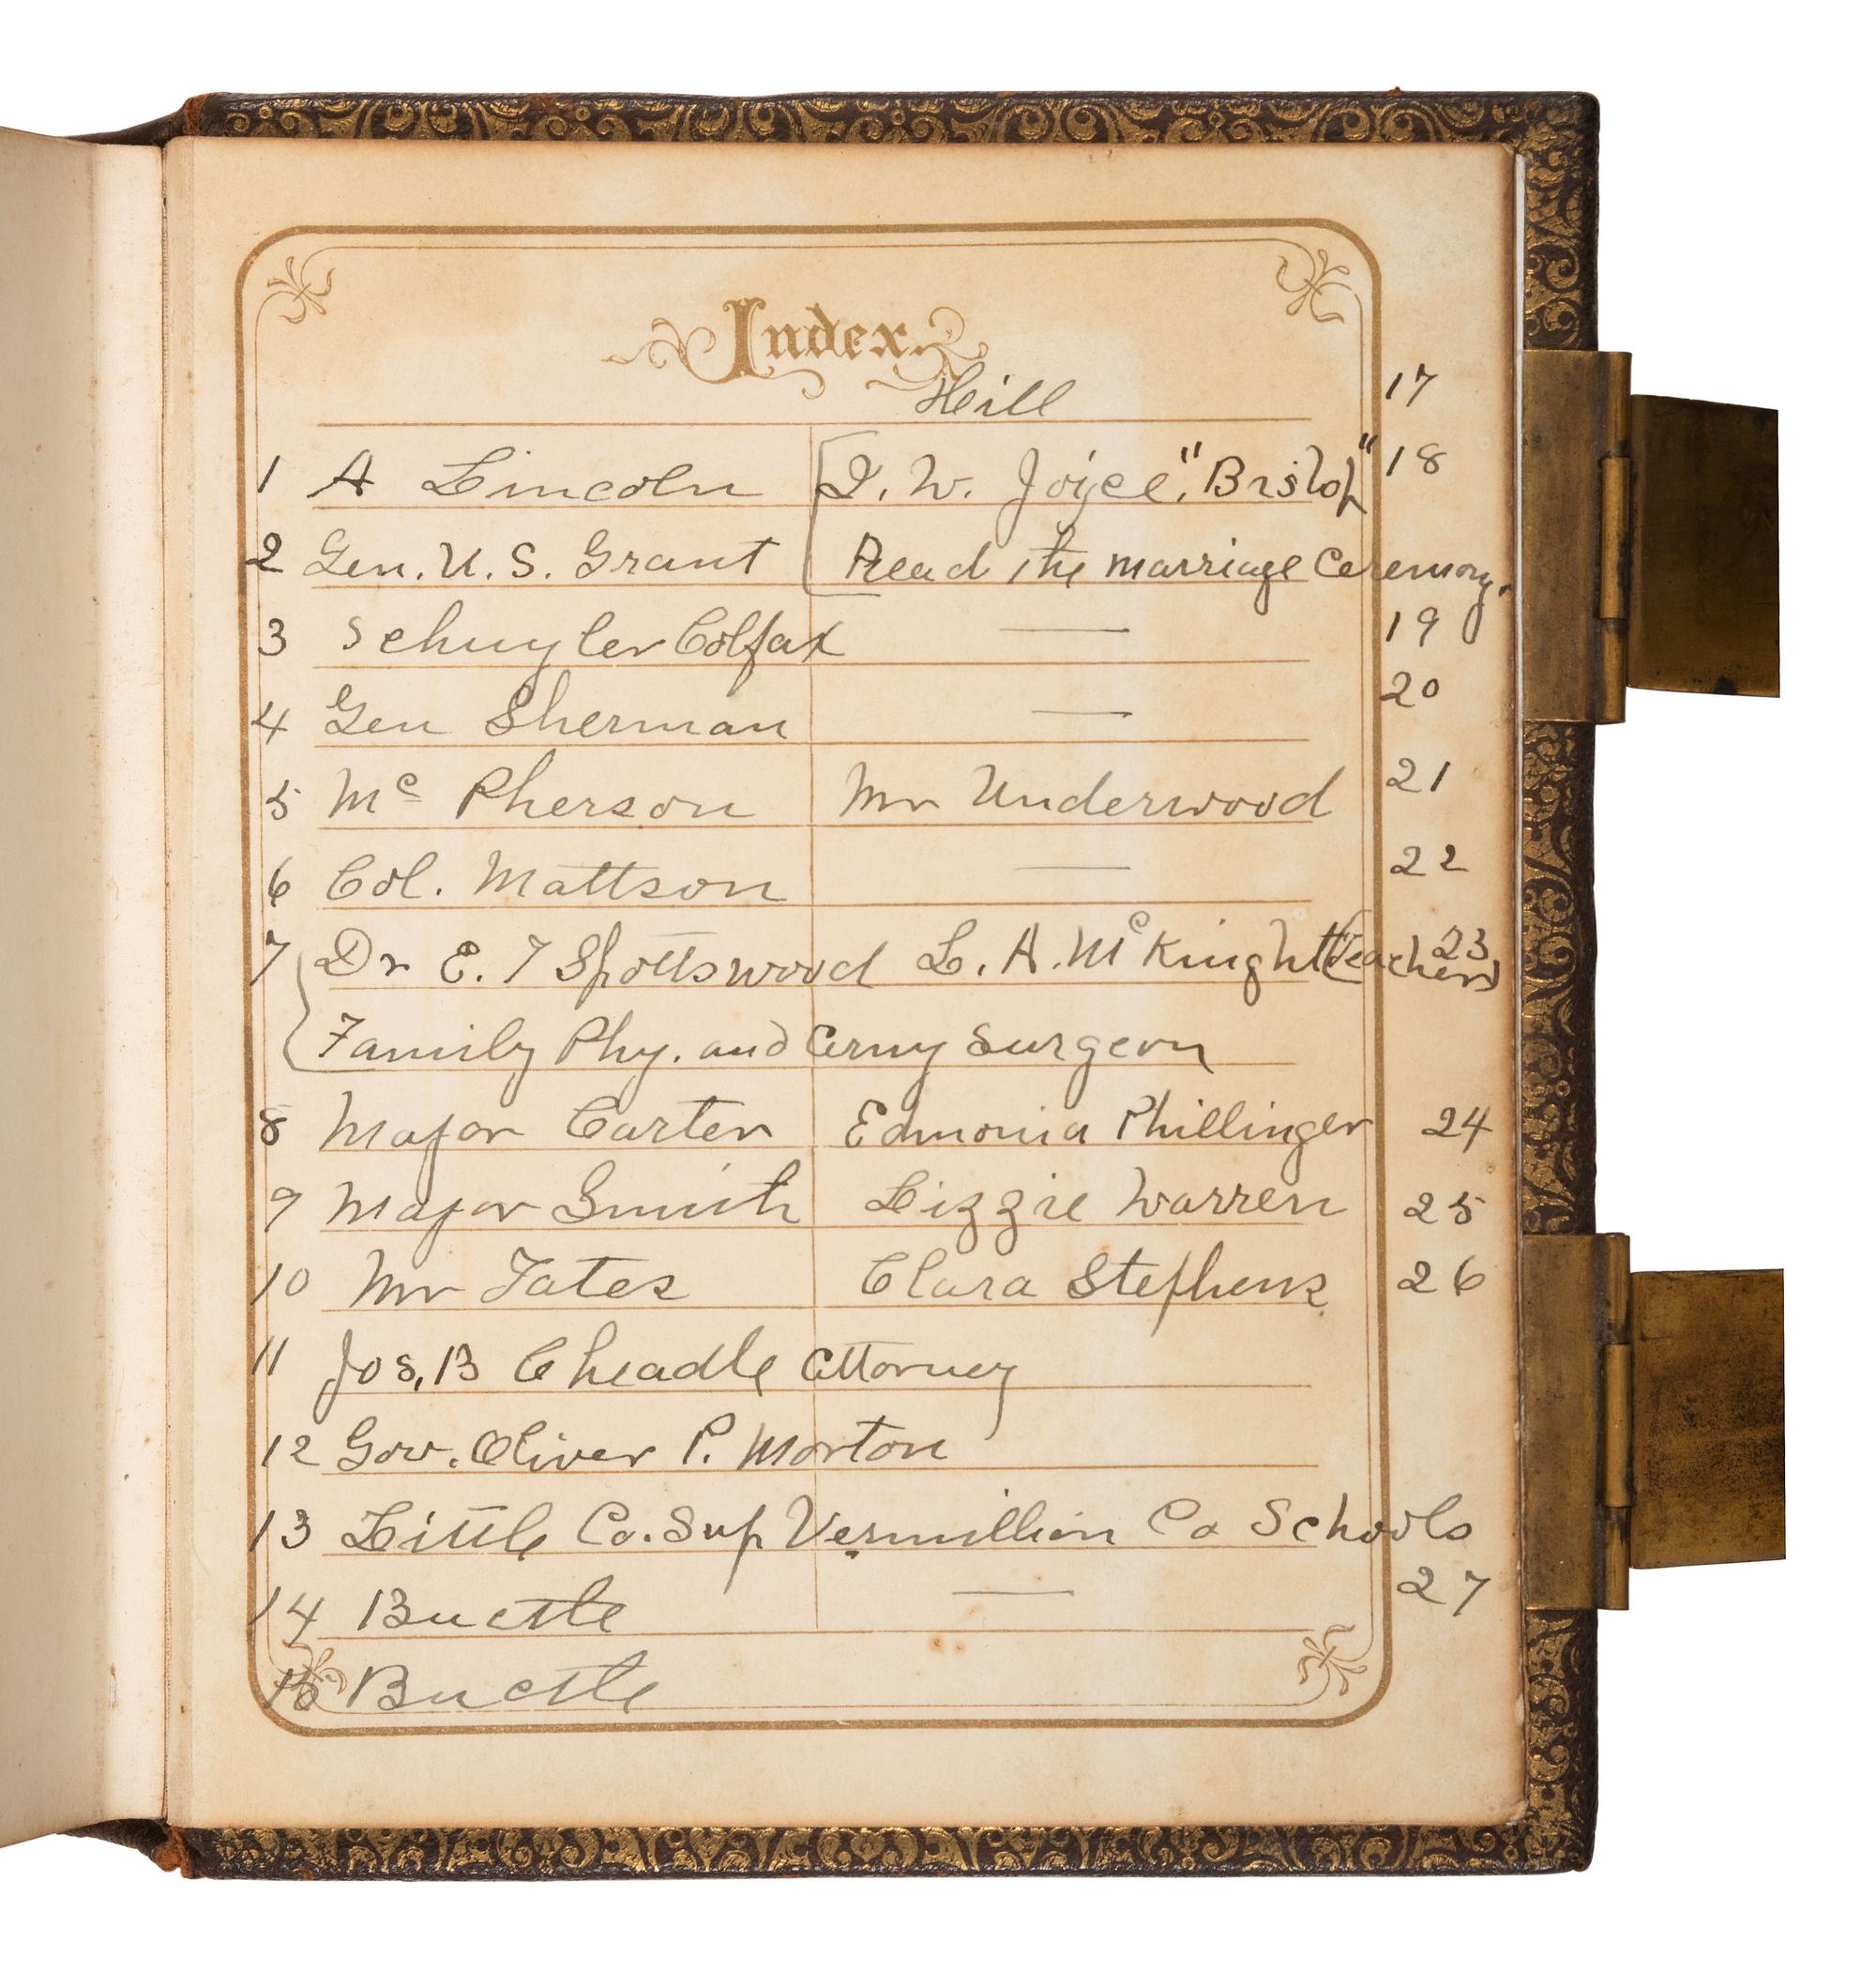 Index.
Hill 17
1 A Lincoln I. W. Joyce, "Bishop" 18
2 Gen. U. S. Grant Read the marriage Ceremony.
3 Schuyler Colfax — 19
4 Gen Sherman — 20
5 Mc Pherson Mr Underwood 21
6 Col. Mattson — 22
7 Dr E. T Spottswood L. A. McKnight (Teacher) 23
Family Phy. and Army Surgeon
8 Major Carter Edmonia Phillinger 24
9 Major Smith Lizzie Warren 25
10 Mr Tates Clara Stephens 26
11 Jos, B Cheadle Attorney
12 Gov. Oliver P. Morton
13 Little Co. Sup Vermillion Co Schools
14 Buctle — 27
Buctle